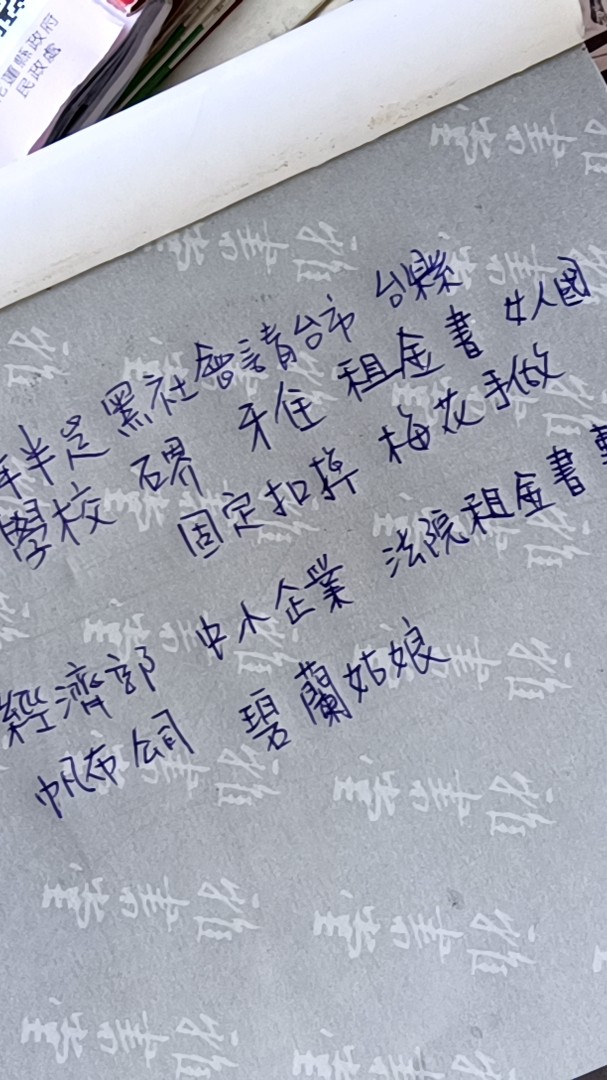 蓮縣政府
民政處
半是 黑社會請台市 台縣
學校 碁 牙住 租金書 女人國
固定扣掉 梅花手做
經濟部 中小企業 法院租金書
帆布公司 碧蘭姑娘